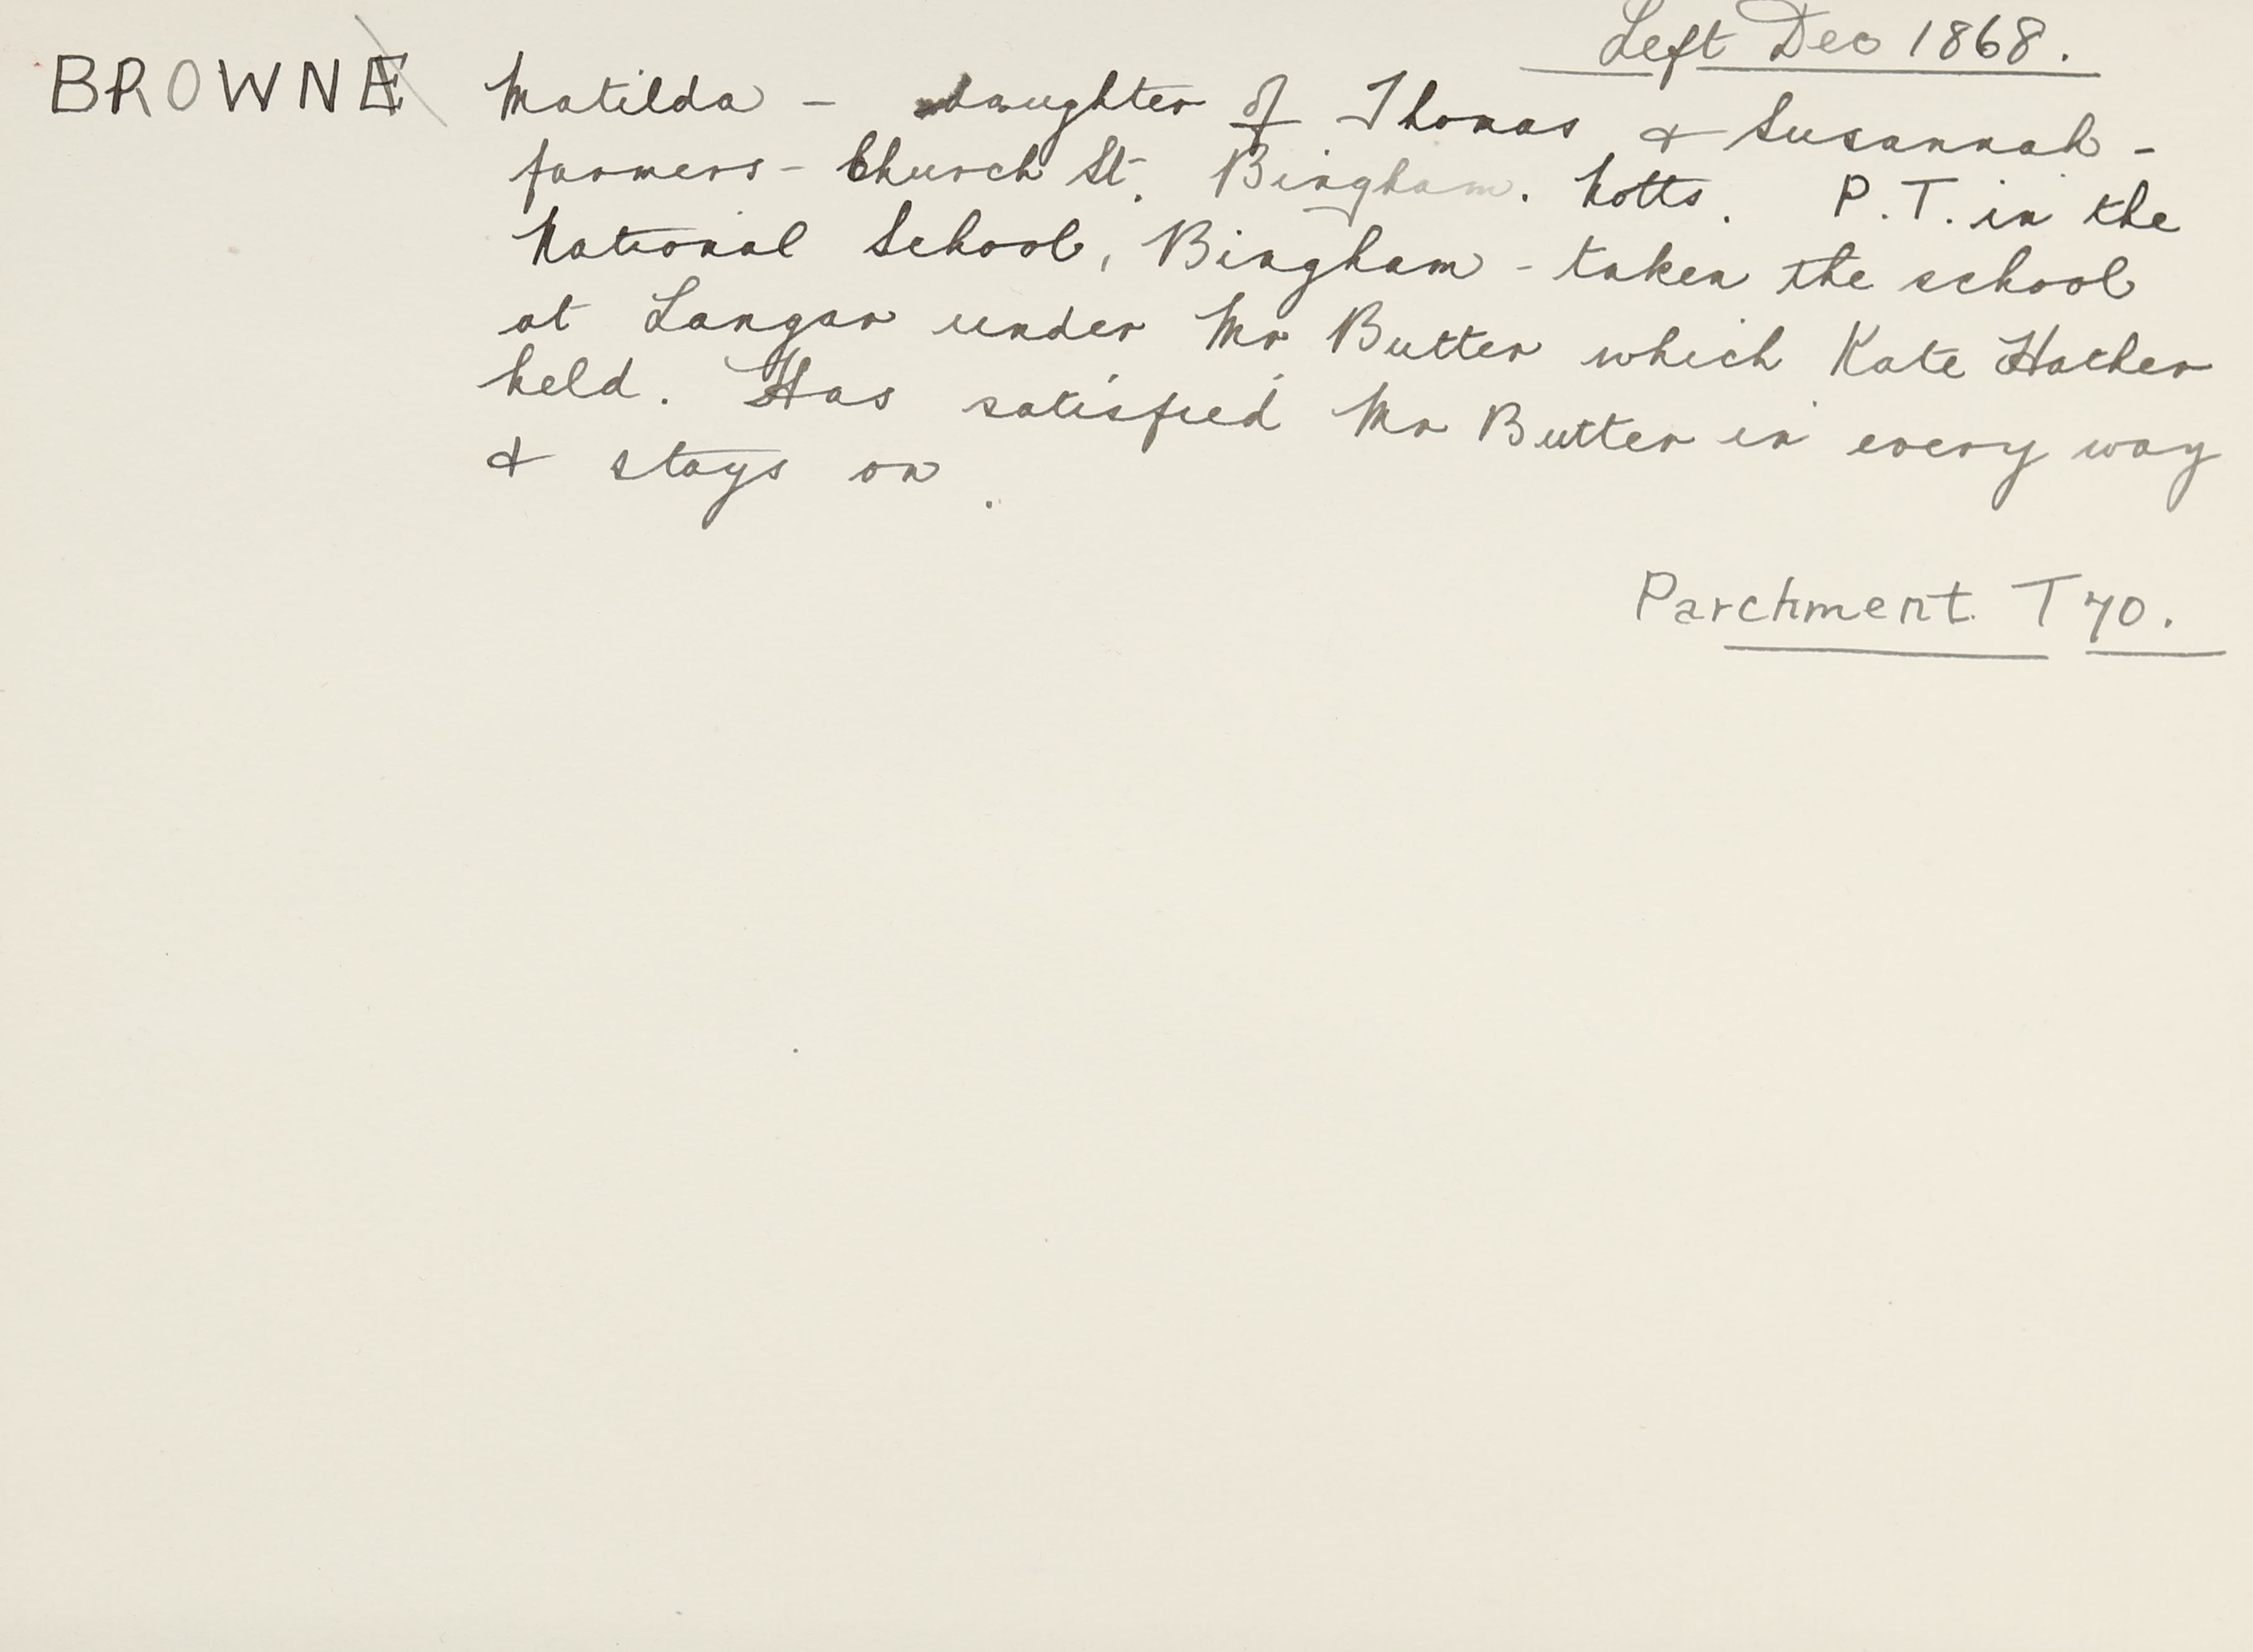 Left Dec 1868.
BROWNE Matilda - daughter of Thomas & Susannah -
farmers - Church St. Bingham. Notts. P.T. in the
National School, Bingham - taken the school
at Langar under Mr Butter which Kate Hather
held. Has satisfied Mr Butter in every way
& stays on.
Parchment T 70.